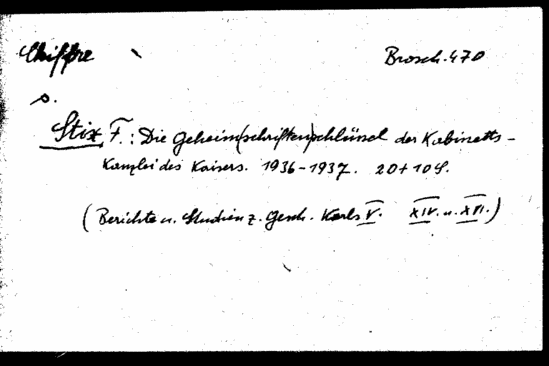 Chiffre
Brosch. 470
s.
Stix, F.: Die Geheim(schriften)schlüssel der Kabinetts-
Kanzlei des Kaisers. 1936-1937. 20+10 S.
(Berichte u. Studien z. Gesch. Karls V. XIV. u. XVI.)